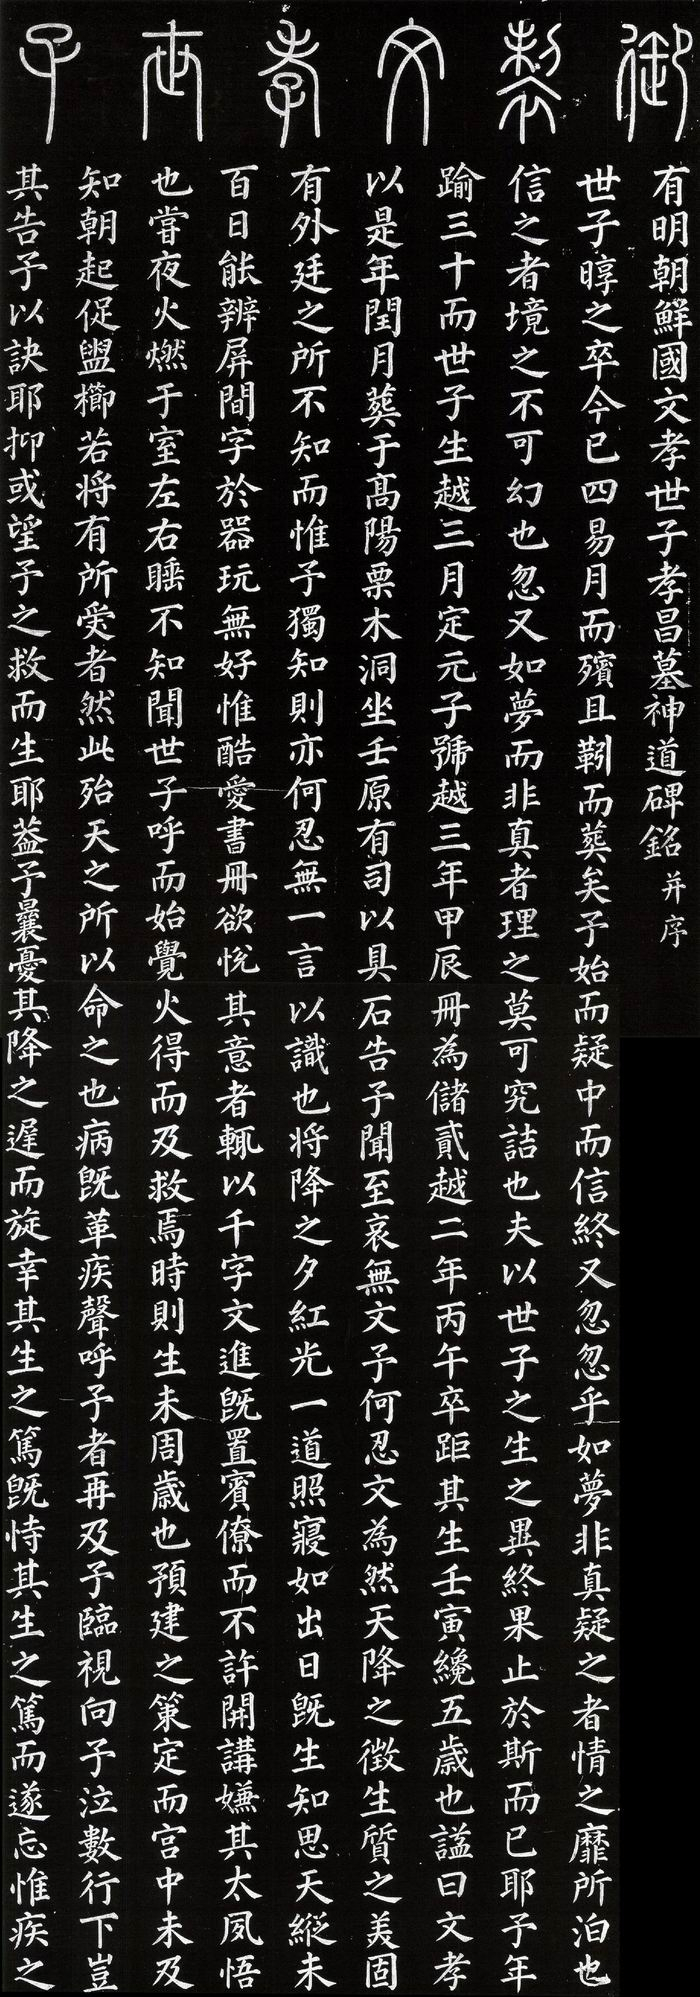 御製文孝世子
有明朝鮮國文孝世子孝昌墓神道碑銘 幷序
世子㬀之卒今已四易月而殯且靷而葬矣予始而疑中而信終又忽忽乎如夢非眞疑之者情之靡所泊也
信之者境之不可幻也忽又如夢而非眞者理之莫可究詰也夫以世子之生之異終果止於斯而已耶予年
踰三十而世子生越三月定元子號越三年甲辰冊為儲貳越二年丙午卒距其生壬寅纔五歲也諡曰文孝
以是年閏月葬于高陽栗木洞坐壬原有司以具石告予聞至哀無文予何忍文為然天降之徵生質之美固
有外廷之所不知而惟予獨知則亦何忍無一言以識也將降之夕紅光一道照寢如出日旣生知思天縱未
百日能辨屛間字於器玩無好惟酷愛書冊欲悅其意者輒以千字文進旣置賓僚而不許開講嫌其太夙悟
也嘗夜火燃于室左右睡不知聞世子呼而始覺火得而及救焉時則生未周歲也預建之策定而宮中未及
知朝起促盥櫛若將有所受者然此殆天之所以命之也病旣革疾聲呼予者再及予臨視向予泣數行下豈
其告予以訣耶抑或望予之救而生耶蓋予曩憂其降之遲而旋幸其生之篤旣恃其生之篤而遂忘惟疾之